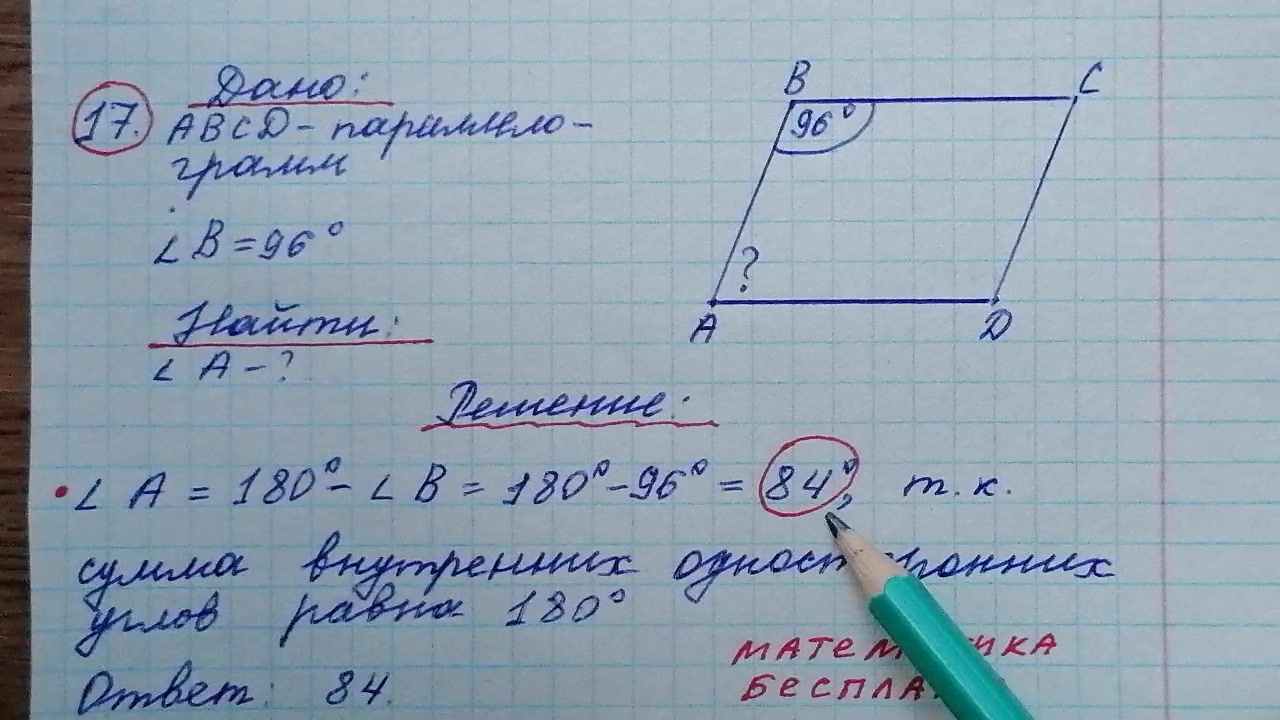 17.
Дано:
ABCD - параллело-
грамм
∠ B = 96°
Найти:
∠ A - ?
B
C
96°
?
A
D
Решение:
∠ A = 180° - ∠ B = 180° - 96° = 84°, т.к.
сумма внутренних односторонних
углов равна 180°
Ответ: 84.
МАТЕМАТИКА
БЕСПЛА